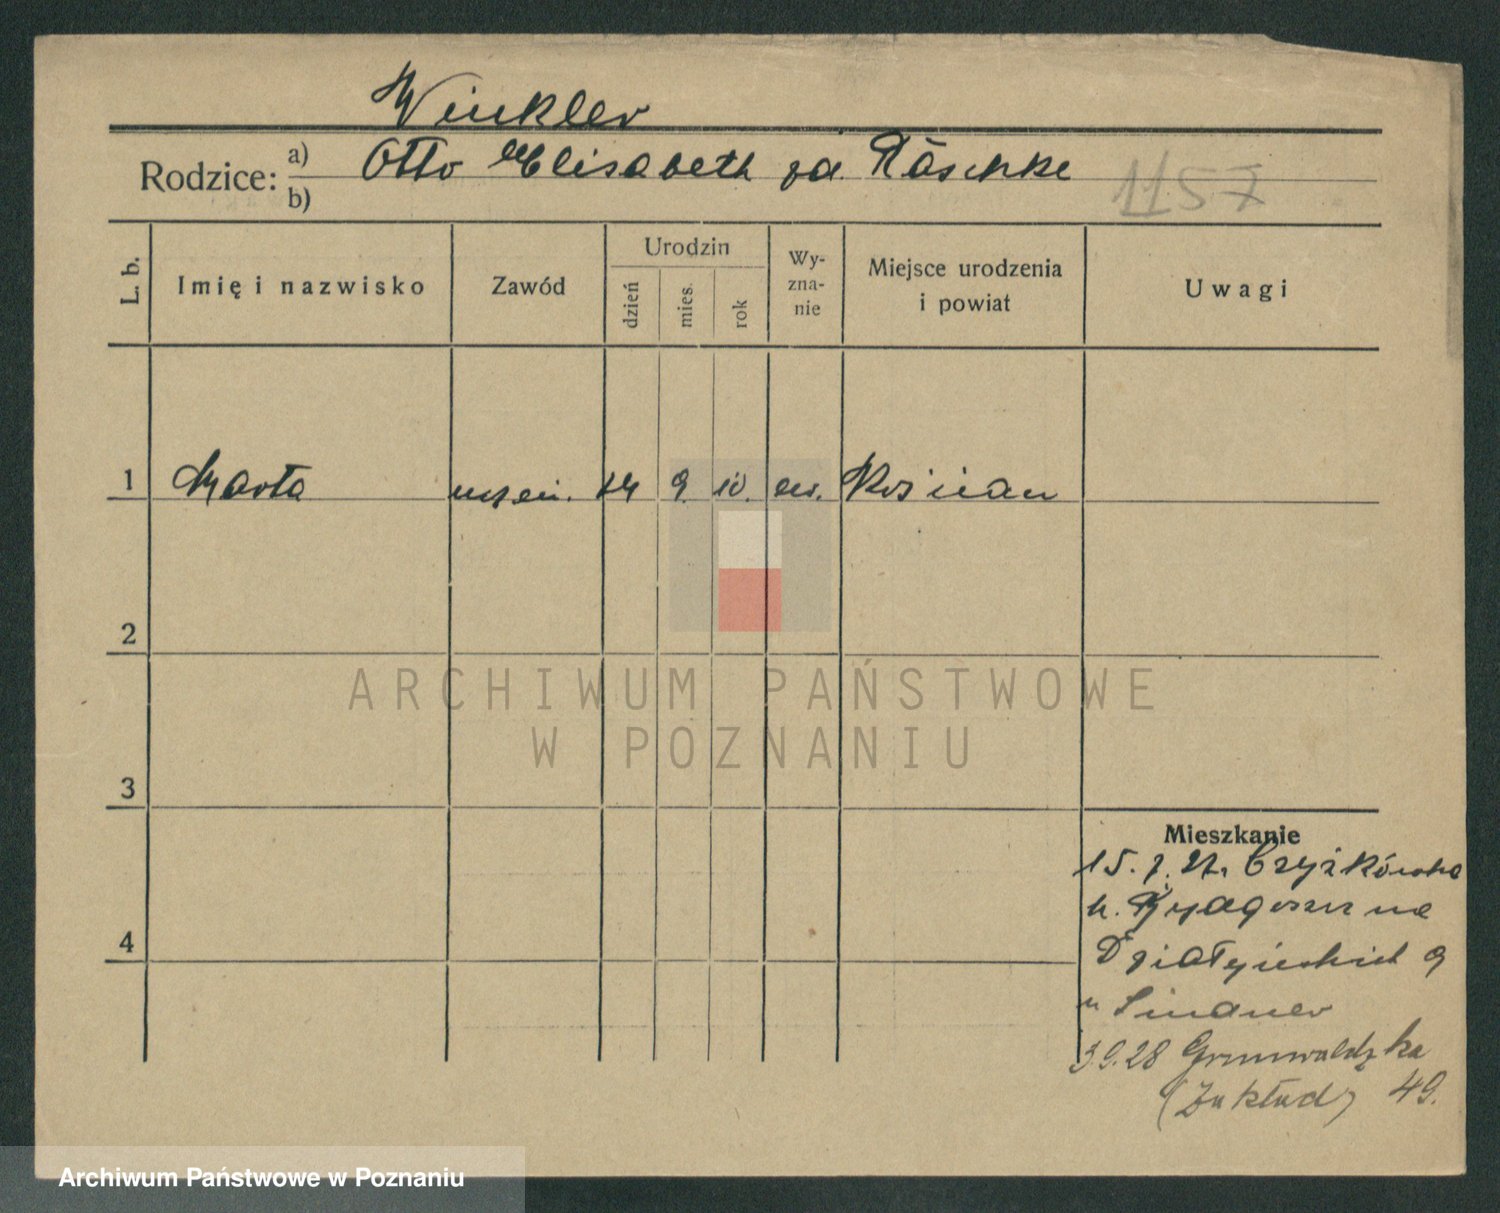 Winkler
Rodzice: a) Otto Elisabeth zd. Räschke
b)
1157
L. b. Imię i nazwisko Zawód Urodzin dzień mies. rok Wy-zna-nie Miejsce urodzenia i powiat Uwagi
1 Marta uczen. 14 9. 10. ew.
2
ARCHIWUM PAŃSTWOWE
W POZNANIU
3
Mieszkanie
15. 7. 27. Czyżkówko
4
Działyńskich 9
3.9.28 Grunwaldzka
(Zakład) 49.
Archiwum Państwowe w Poznaniu